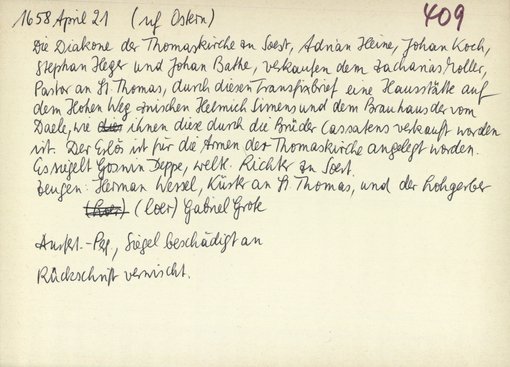 1658 April 21 (uf Ostern) 409
Die Diakone der Thomaskirche zu Soest, Adrian Heine, Johan Koch,
Stephan Heger und Johan Bathe, verkaufen dem Zacharias Moller,
Pastor an St. Thomas, durch diesen Transfixbrief eine Hausstätte auf
dem Hohen Weg zwischen Helmich Simens und dem Brauhaus der vom
Daele, wie ihnen diese durch die Brüder Cassatens verkauft worden
ist. Der Erlös ist für die Armen der Thomaskirche angelegt worden.
Es siegelt Goswin Deppe, weltl. Richter zu Soest.
Zeugen: Herman Wessel, Küster an St. Thomas, und der Rohgerber
(loer) Gabriel Grote
Ausf.-Perg, Siegel beschädigt an
Rückschrift verwischt.